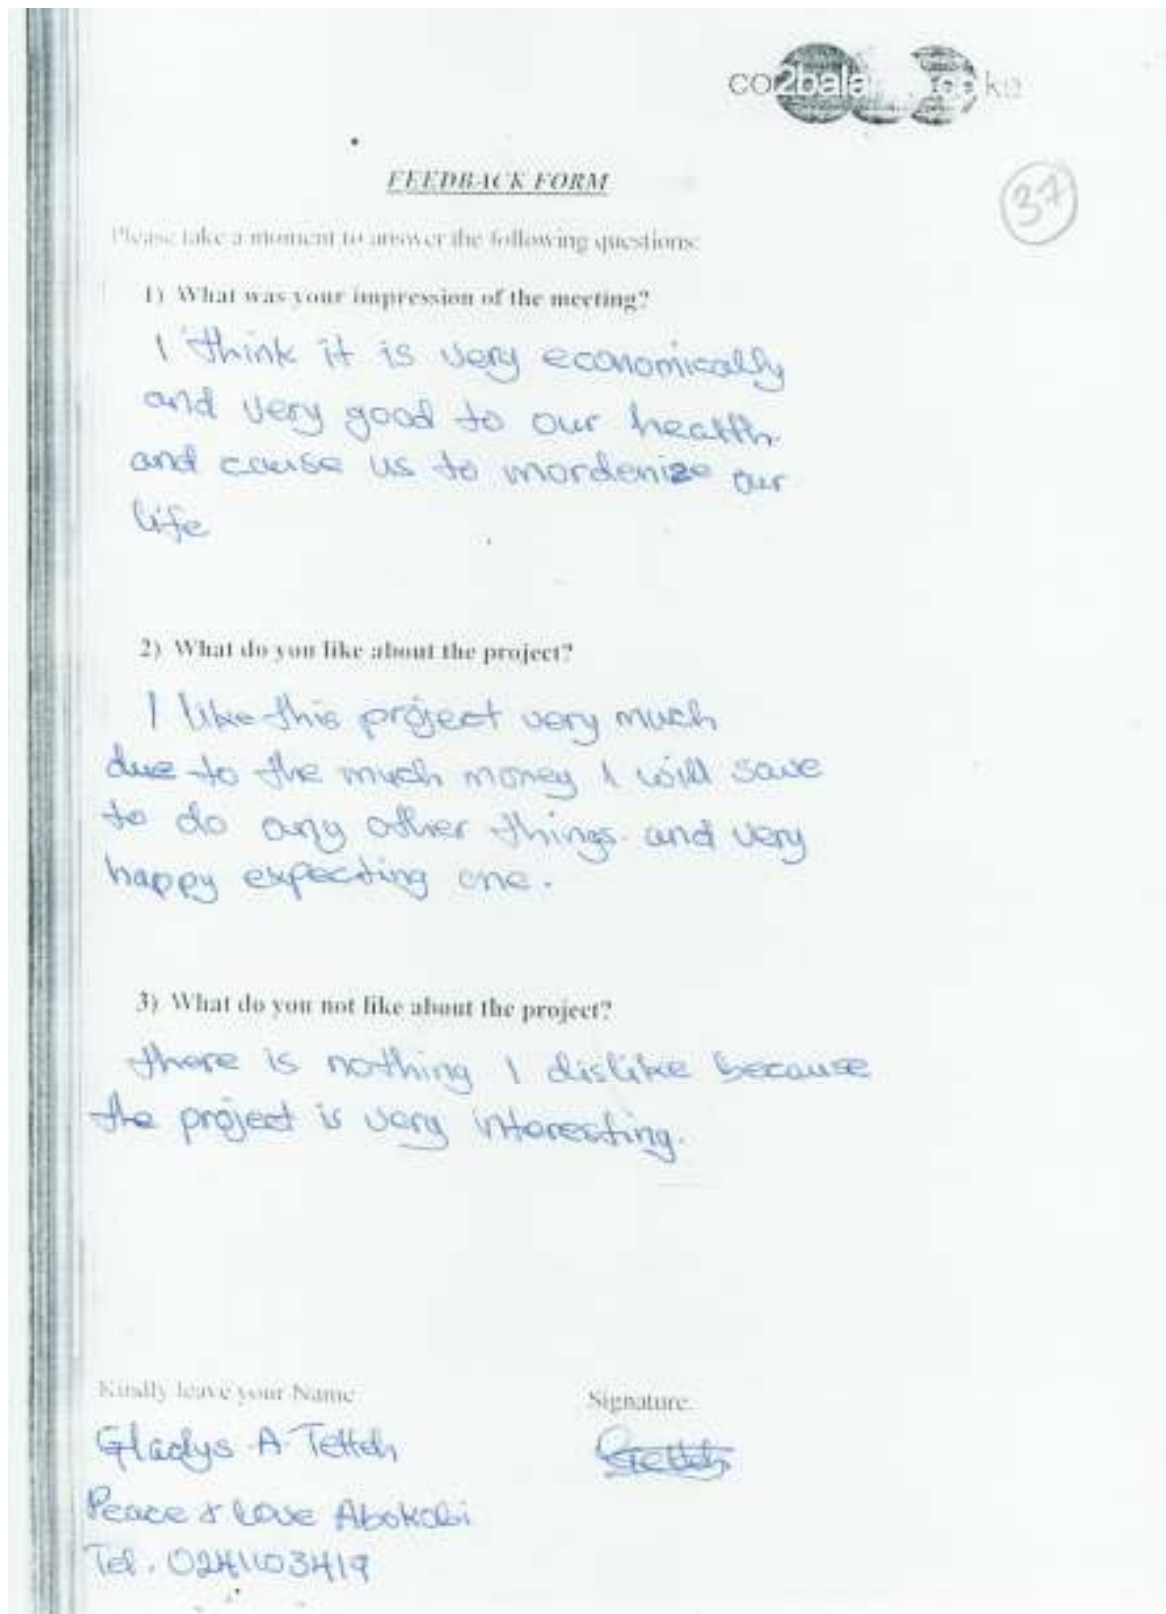 co2bala
FEEDBACK FORM
37
Please take a moment to answer the following questions:
1) What was your impression of the meeting?
I think it is very economically
and very good to our health
and cause us to mordenize our
life
2) What do you like about the project?
I like this project very much
due to the much money I will save
to do any other things and very
happy expecting one.
3) What do you not like about the project?
there is nothing I dislike because
the project is very interesting.
Kindly leave your Name
Signature.
Gladys A. Tetteh
Peace & Love Abokobi
Tel.